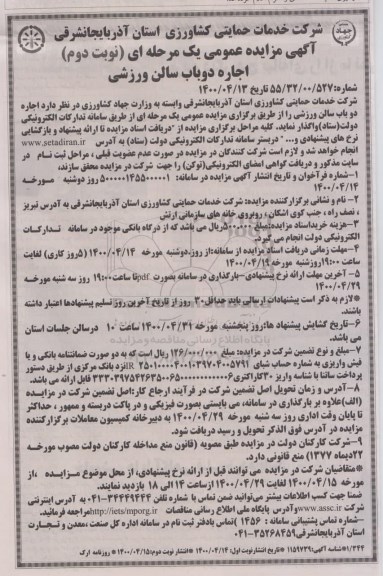 شرکت خدمات حمایتی کشاورزی استان آذربایجانشرقی
آگهی مزایده عمومی یک مرحله ای (نوبت دوم)
اجاره دوباب سالن ورزشی
شماره: ۵۵/۳۲/۰۰/۵۲۷ تاریخ ۱۴۰۰/۰۴/۱۳
شرکت خدمات حمایتی کشاورزی استان آذربایجانشرقی وابسته به وزارت جهاد کشاورزی در نظر دارد اجاره
دو باب سالن ورزشی را از طریق برگزاری مزایده عمومی یک مرحله ای از طریق سامانه تدارکات الکترونیکی
دولت(ستاد)واگذار نماید. کلیه مراحل برگزاری مزایده از "دریافت اسناد مزایده تا ارائه پیشنهاد و بازگشایی
نرخ های پیشنهادی و... " دربستر سامانه تدارکات الکترونیکی دولت (ستاد) به آدرس www.setadiran.ir
انجام خواهد شد و لازم است شرکت کنندگان در مزایده در صورت عدم عضویت قبلی ، مراحل ثبت نام در
سایت مذکور و دریافت گواهی امضای الکترونیکی(توکن) را جهت شرکت در مزایده محقق سازند.
۱-شماره فراخوان و تاریخ انتشار آگهی مزایده در سامانه: ۵۰۰۰۰۱۴۵۵۰۰۰۰۰۱ روز دوشنبه مورخه
۱۴۰۰/۰۴/۱۴
۲- نام و نشانی برگزارکننده مزایده: شرکت خدمات حمایتی کشاورزی استان آذربایجانشرقی به آدرس تبریز
، نصف راه ، جنب کوی اشکان ، روبروی خانه های سازمانی ارتش
۳-هزینه خریداسناد مزایده: مبلغ ۵۰۰.۰۰۰ریال می باشد که از درگاه بانکی موجود در سامانه تدارکات
الکترونیکی دولت انجام می گیرد.
۴-مهلت زمانی دریافت اسناد مزایده از سامانه:از روز،دوشنبه مورخه ۱۴۰۰/۰۴/۱۴ (۵روز کاری) لغایت
ساعت ۱۹:۰۰روزشنبه مورخه ۱۴۰۰/۰۴/۱۹
۵- آخرین مهلت ارائه نرخ پیشنهادی-بارگذاری در سامانه بصورت pdf.تا ساعت۱۹:۰۰ روز سه شنبه مورخه
۱۴۰۰/۰۴/۲۹
*لازم به ذکر است پیشنهادات ارسالی باید حداقل۳۰ روز از تاریخ آخرین روز تسلیم پیشنهادها اعتبار داشته
باشند.
۶-تاریخ گشایش پیشنهاد ها:روز پنجشنبه مورخه ۱۴۰۰/۰۴/۳۱ ساعت ۱۰ درسالن جلسات استان
می باشد.
۷-مبلغ و نوع تضمین شرکت در مزایده: مبلغ ۱۲۶/۰۰۰/۰۰۰ ریال است که به دو صورت ضمانتنامه بانکی و یا
۸-آدرس و زمان تحویل اصل تضمین شرکت در فرآیند ارجاع کار:اصل تضمین شرکت در مزایده
(الف)علاوه بر بارگذاری در سامانه، می بایستی بصورت فیزیکی و در پاکت دربسته و ممهور ، حداکثر
تا پایان وقت اداری روز سه شنبه مورخه ۱۴۰۰/۰۴/۲۹ به دبیرخانه کمیسیون معاملات برگزارکننده
مزایده در آدرس فوق الذکر تحویل و رسید دریافت شود.
۹-شرکت کارکنان دولت در مزایده طبق مصوبه (قانون منع مداخله کارکنان دولت مصوب مورخه
۲۲دیماه ۱۳۳۷) منع قانونی دارد.
*متقاضیان شرکت در مزایده می توانند قبل از ارائه نرخ پیشنهادی، از محل موضوع مزایده ،از
مورخه ۱۴۰۰/۰۴/۱۵ لغایت ۱۴۰۰/۰۴/۲۹ ازساعت ۱۴ الی ۱۸ بازدید نمایند.
ضمنا جهت کسب اطلاعات بیشتر می‌توانید ضمن تماس با شماره تلفن ۳۴۴۴۹۴۴۴-۰۴۱ به آدرس اینترنتی
شرکت www.assc.ir وآدرس پایگاه ملی اطلاع رسانی مناقصات http://iets/mporg.ir مراجعه فرمائید.
-شماره تماس پشتیبانی سامانه : ۱۴۵۶ )تماس بادفتر ثبت نام در سامانه اداره کل صنعت ،معدن و تجارت
باشماره ۳۵۲۶۸۴۵۹-۰۴۱